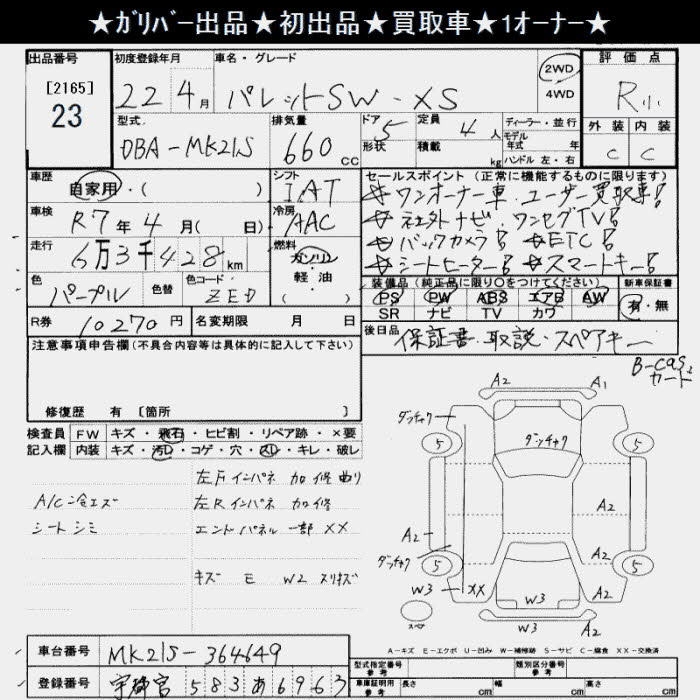 ★ｶﾞﾘﾊﾞｰ出品★初出品★買取車★1ｵｰﾅｰ★
出品番号 初度登録年月 車名・グレード 評価点
[2165] 22年 4月 パレットSW-XS 2WD 4WD R小
23
型式 排気量 ドア 定員 ディーラー・並行 外装 内装
DBA-MK21S 660cc 5 4人 モデル年式 年式 C C
形状 積載 kg ハンドル 左・右
車歴 シフト セールスポイント(正常に機能するものに限ります)
自家用・( ) IAT ☆ワンオーナー車.ユーザー買取車!
車検 冷房 ☆社外ナビ・ワンセグTV!
R7年4月( 日) AAC ☆バックカメラ! ☆ETC!
走行 燃料 ☆シートヒーター! ☆スマートキー!
6万3千428km ガソリン 軽・油
色 色替 色コード 装備品(純正品に限り○をつけてください) 新車保証書
パープル ZED PS PW ABS エアB AW 有・無
SR ナビ TV カワ
R券 10270円 名変期限 月 日 後日品 保証書.取説.スペアキー
B-cas カード
注意事項申告欄(不具合内容等は具体的に記入して下さい)
修復歴 有 [箇所
検査員 FW キズ・飛石・ヒビ割・リペア跡・×要
記入欄 内装 キズ・汚れ・コゲ・穴・スレ・キレ・破レ
左Fインパネ 加修 曲り
A/C冷エズ 左Rインパネ 加修
シートシミ エンドパネル 一部 XX
キズ E W2 スリキズ
A2 A1
ダッチャク
5 ダッチャク 5
A2
A2 A2
ダッチャク
5 5
W3 XX W3 A2
スペア W3 A2
A-キズ E-エクボ U-凹み W-補修跡 S-サビ C-腐食 XX-交換済
車台番号 MK21S-364649
登録番号 宇都宮 583 あ 6963
型式指定番号 参考 類別区分番号 参考
車庫証明用 参考 長さ cm 幅 cm 高さ cm